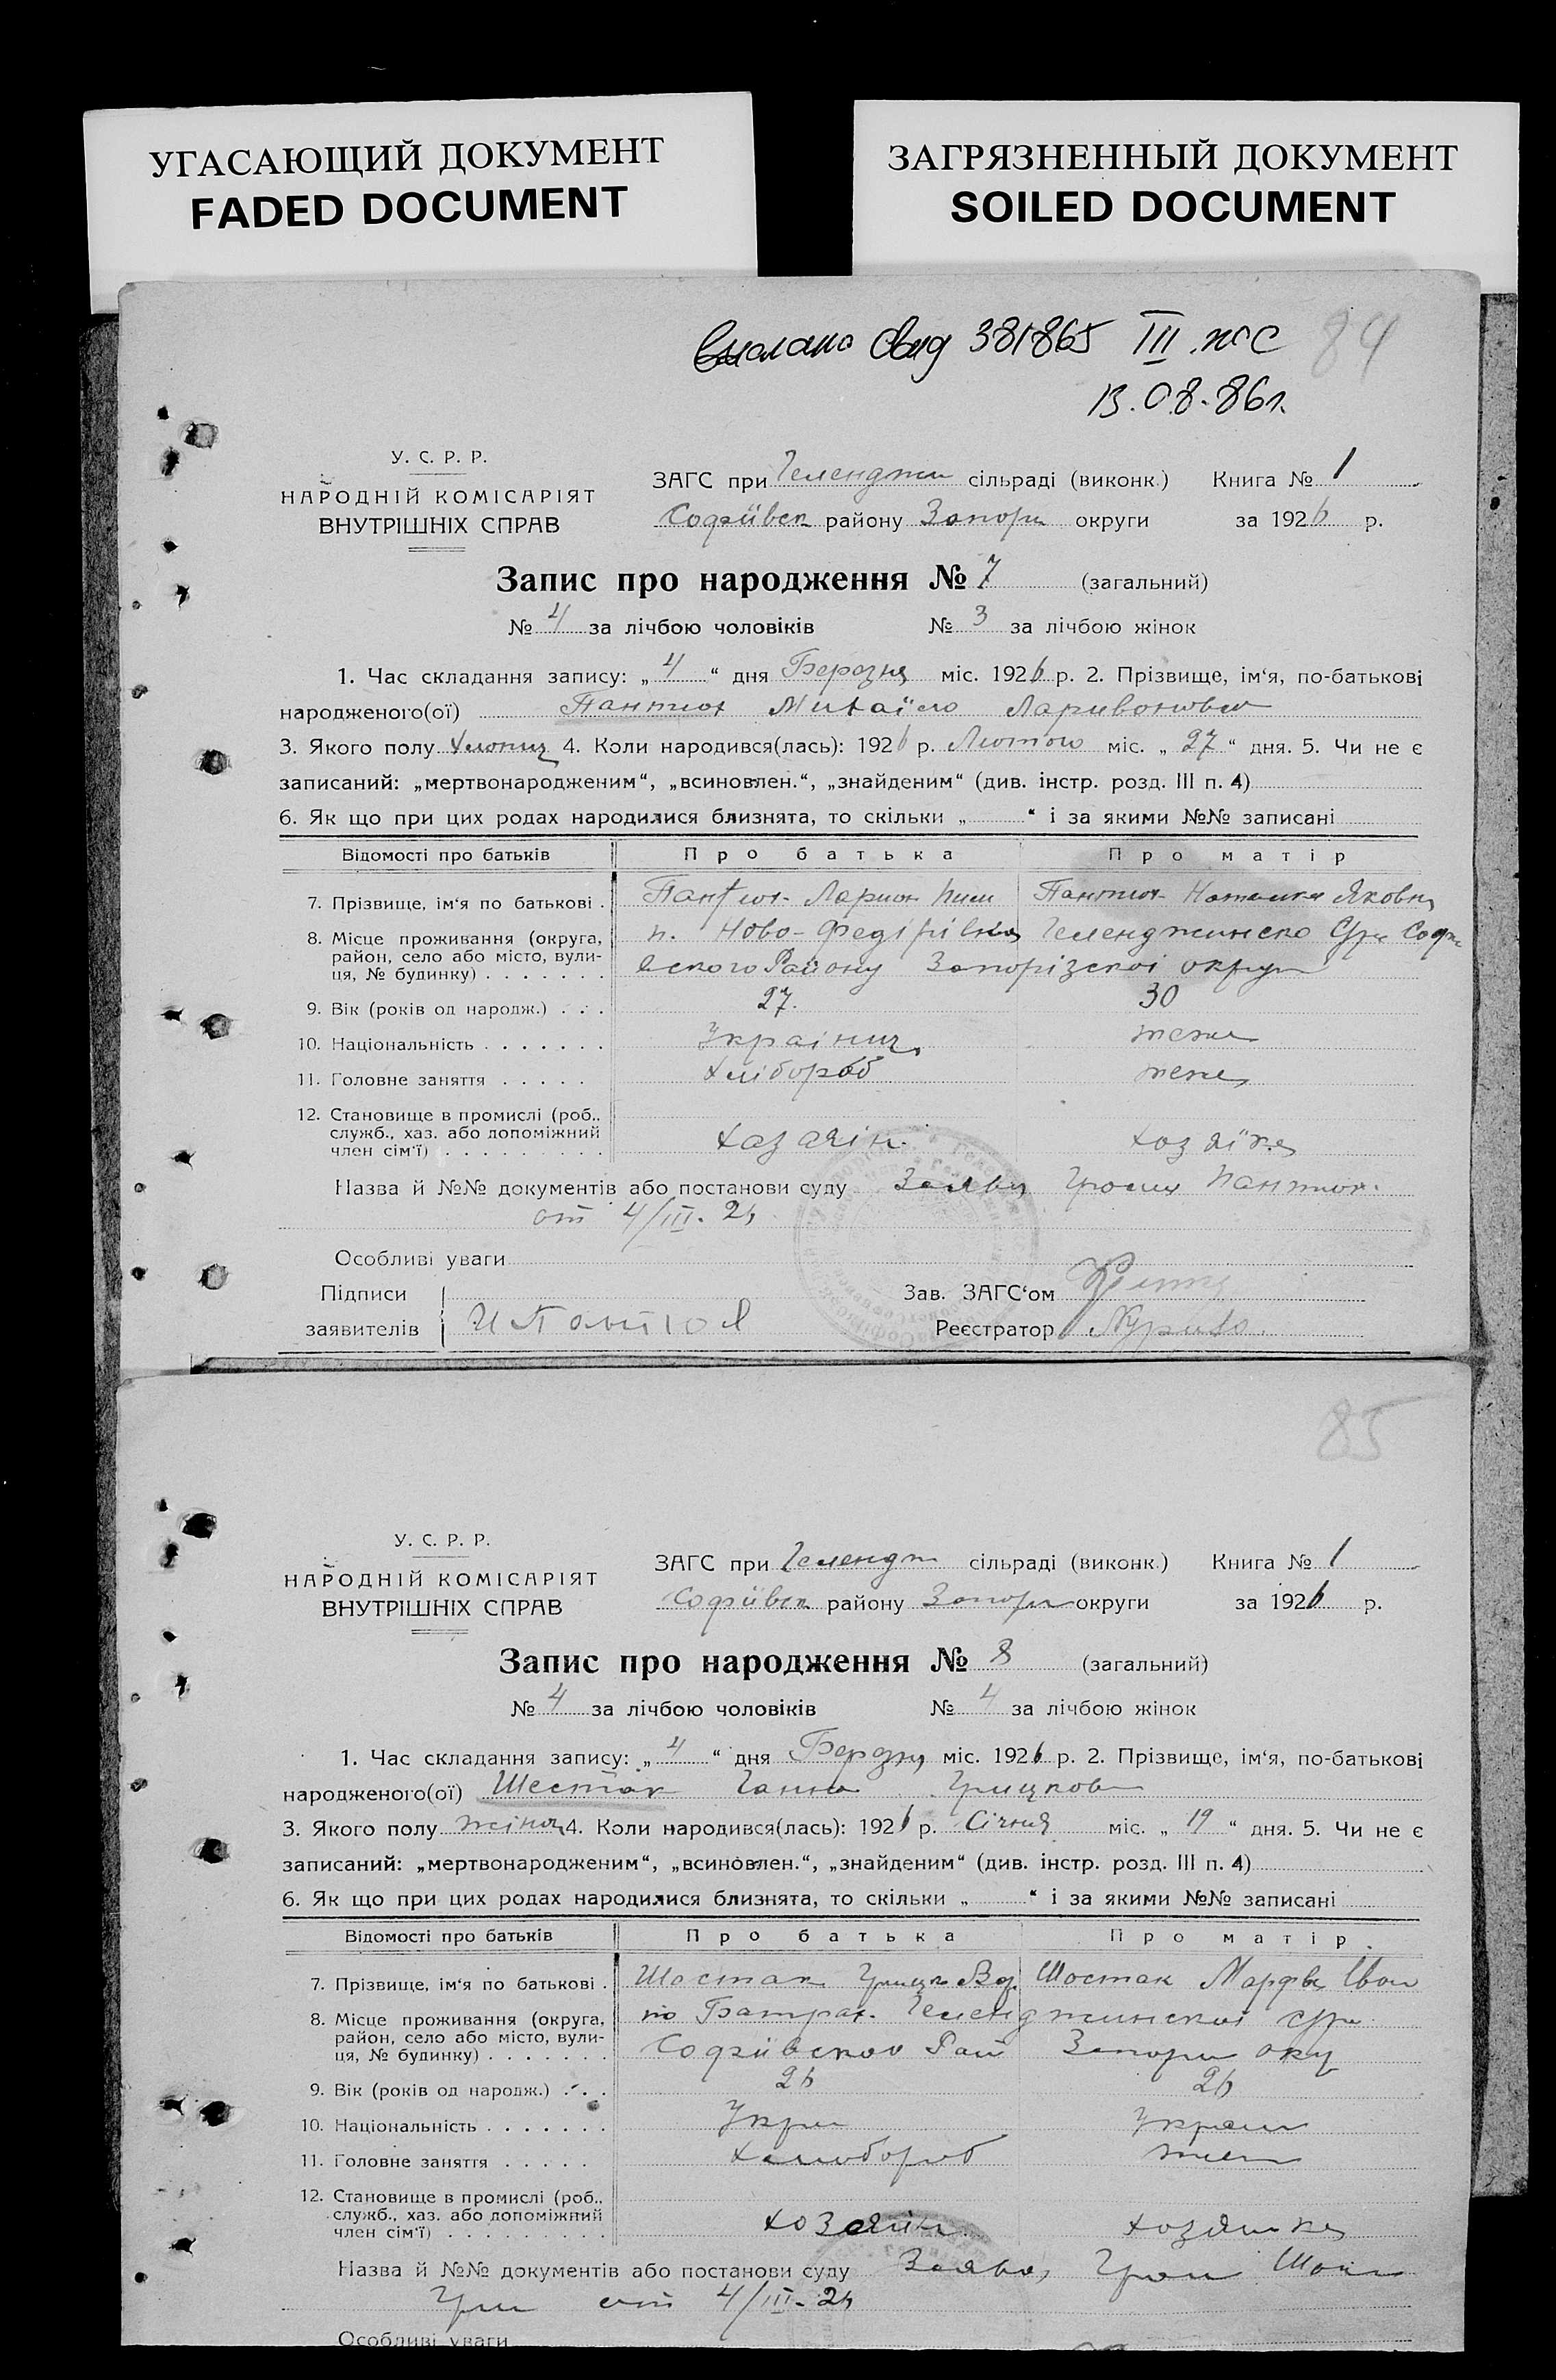 УГАСАЮЩИЙ ДОКУМЕНТ
FADED DOCUMENT
ЗАГРЯЗНЕННЫЙ ДОКУМЕНТ
SOILED DOCUMENT
381865 III
84
13.08.86г.
У. С. Р. Р.
НАРОДНІЙ КОМІСАРІЯТ
ВНУТРІШНІХ СПРАВ
ЗАГС при Геленджи сільраді (виконк.) Книга № 1
Софіївск району Запорі округи за 1926 р.
Запис про народження № 7 (загальний)
№ 4 за лічбою чоловіків № 3 за лічбою жінок
1. Час складання запису: „ 4 “ дня Березня міс. 1926 р. 2. Прізвище, ім‘я, по-батькові
народженого(ої) Пантюх Михайло
3. Якого полу Хлопиц 4. Коли народився(лась): 1926 р. Лютого міс. „ 27 “ дня. 5. Чи не є
записаний: „мертвонародженим“, „всиновлен.“, „знайденим“ (див. інстр. розд. III п. 4)
6. Як що при цих родах народилися близнята, то скільки „ “ і за якими №№ записані
Відомості про батьків Про батька Про матір
7. Прізвище, ім‘я по батькові . Пантюх Ларион Пантюх Наталия Яковн
8. Місце проживання (округа, район, село або місто, вулиця, № будинку) п. Ново-Федірівка Геленджинско Софи
вского Району Запорізскоі округи
9. Вік (років од народж.) 27. 30
10. Національність Украіниц
11. Головне заняття Хлібороб
12. Становище в промислі (роб., служб., хаз. або допоміжний член сім‘ї) Хазаяін Хозяїка
Назва й №№ документів або постанови суду Заява Пантюх.
от 4/III. 26
Особливі уваги
Підписи
заявителів
Зав. ЗАГС‘ом
Реєстратор
85
У. С. Р. Р.
НАРОДНІЙ КОМІСАРІЯТ
ВНУТРІШНІХ СПРАВ
ЗАГС при Гелендж сільраді (виконк.) Книга № 1
Софіївск району Запорі округи за 1926 р.
Запис про народження № 8 (загальний)
№ 4 за лічбою чоловіків № 4 за лічбою жінок
1. Час складання запису: „ 4 “ дня Березня міс. 1926 р. 2. Прізвище, ім‘я, по-батькові
народженого(ої) Шестак Ганна Грицков
3. Якого полу жіноч 4. Коли народився(лась): 1926 р. Січня міс. „ 19 “ дня. 5. Чи не є
записаний: „мертвонародженим“, „всиновлен.“, „знайденим“ (див. інстр. розд. III п. 4)
6. Як що при цих родах народилися близнята, то скільки „ “ і за якими №№ записані
Відомості про батьків Про батька Про матір
7. Прізвище, ім‘я по батькові . Шостак Грицк Шостак Марфа Іван
8. Місце проживання (округа, район, село або місто, вулиця, № будинку) Геленджинскоі
Софіівскоо Рай Запори окр
9. Вік (років од народж.) 26 26
10. Національність Укра Украін
11. Головне заняття Хлибороб
12. Становище в промислі (роб., служб., хаз. або допоміжний член сім‘ї) Хозяїн Хозяика
Назва й №№ документів або постанови суду Заява,
от 4/III-26
Особливі уваги